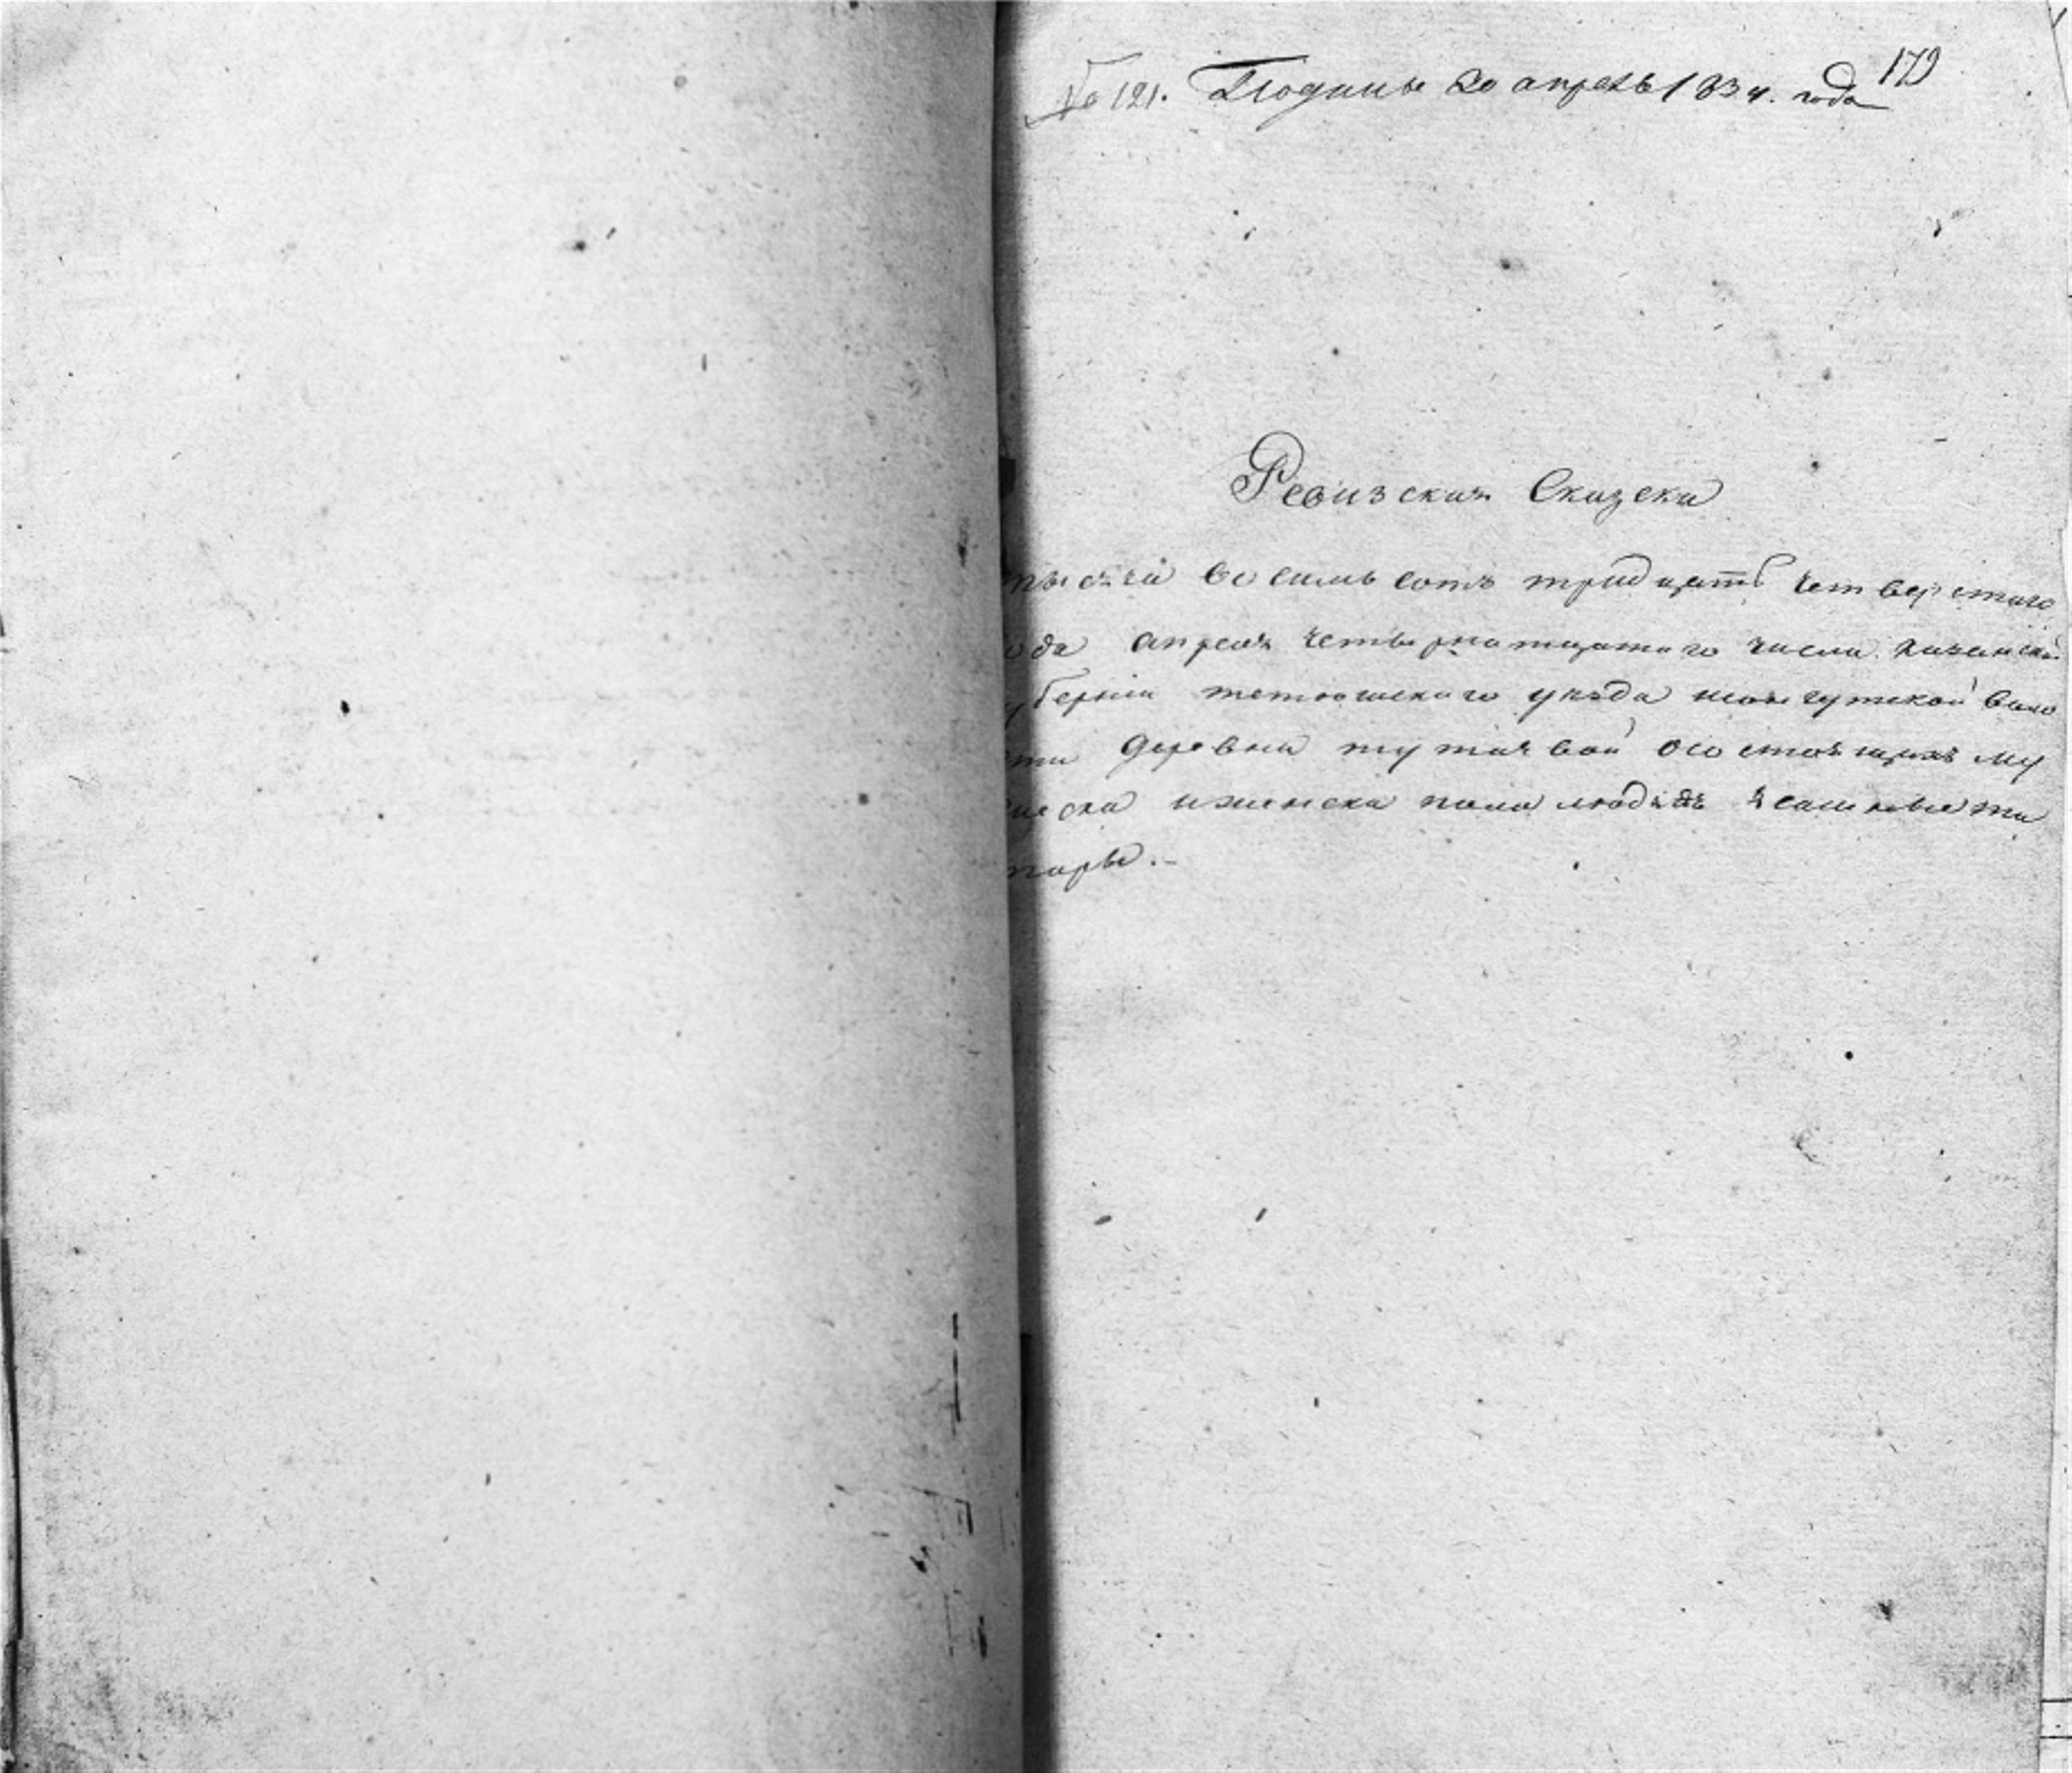 179
№ 121. Поданы 20 апреля 1834. года
Ревизская Сказска
тысяча восемь сотъ тридцать четверстаго
ода апреля четырнатцатаго числа казанской
губернии тетюшскаго уезда волос
ти деревни осостоящихъ му
жеска и женска пола людяхъ ясашныхъ та
тары.